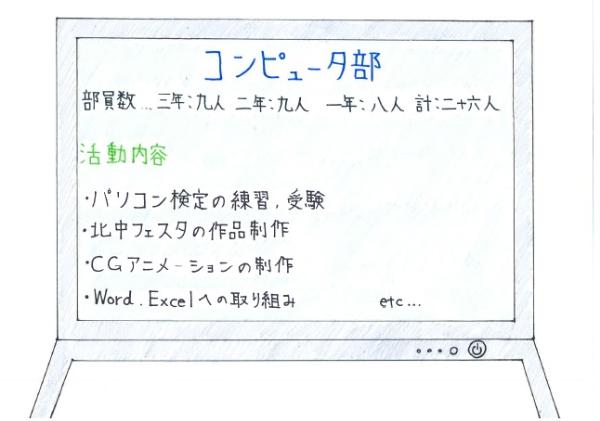 コンピュータ部
部員数…三年:九人 二年:九人 一年:八人 計:二十六人
活動内容
・パソコン検定の練習,受験
・北中フェスタの作品制作
・CGアニメーションの制作
・Word.Excelへの取り組み etc...